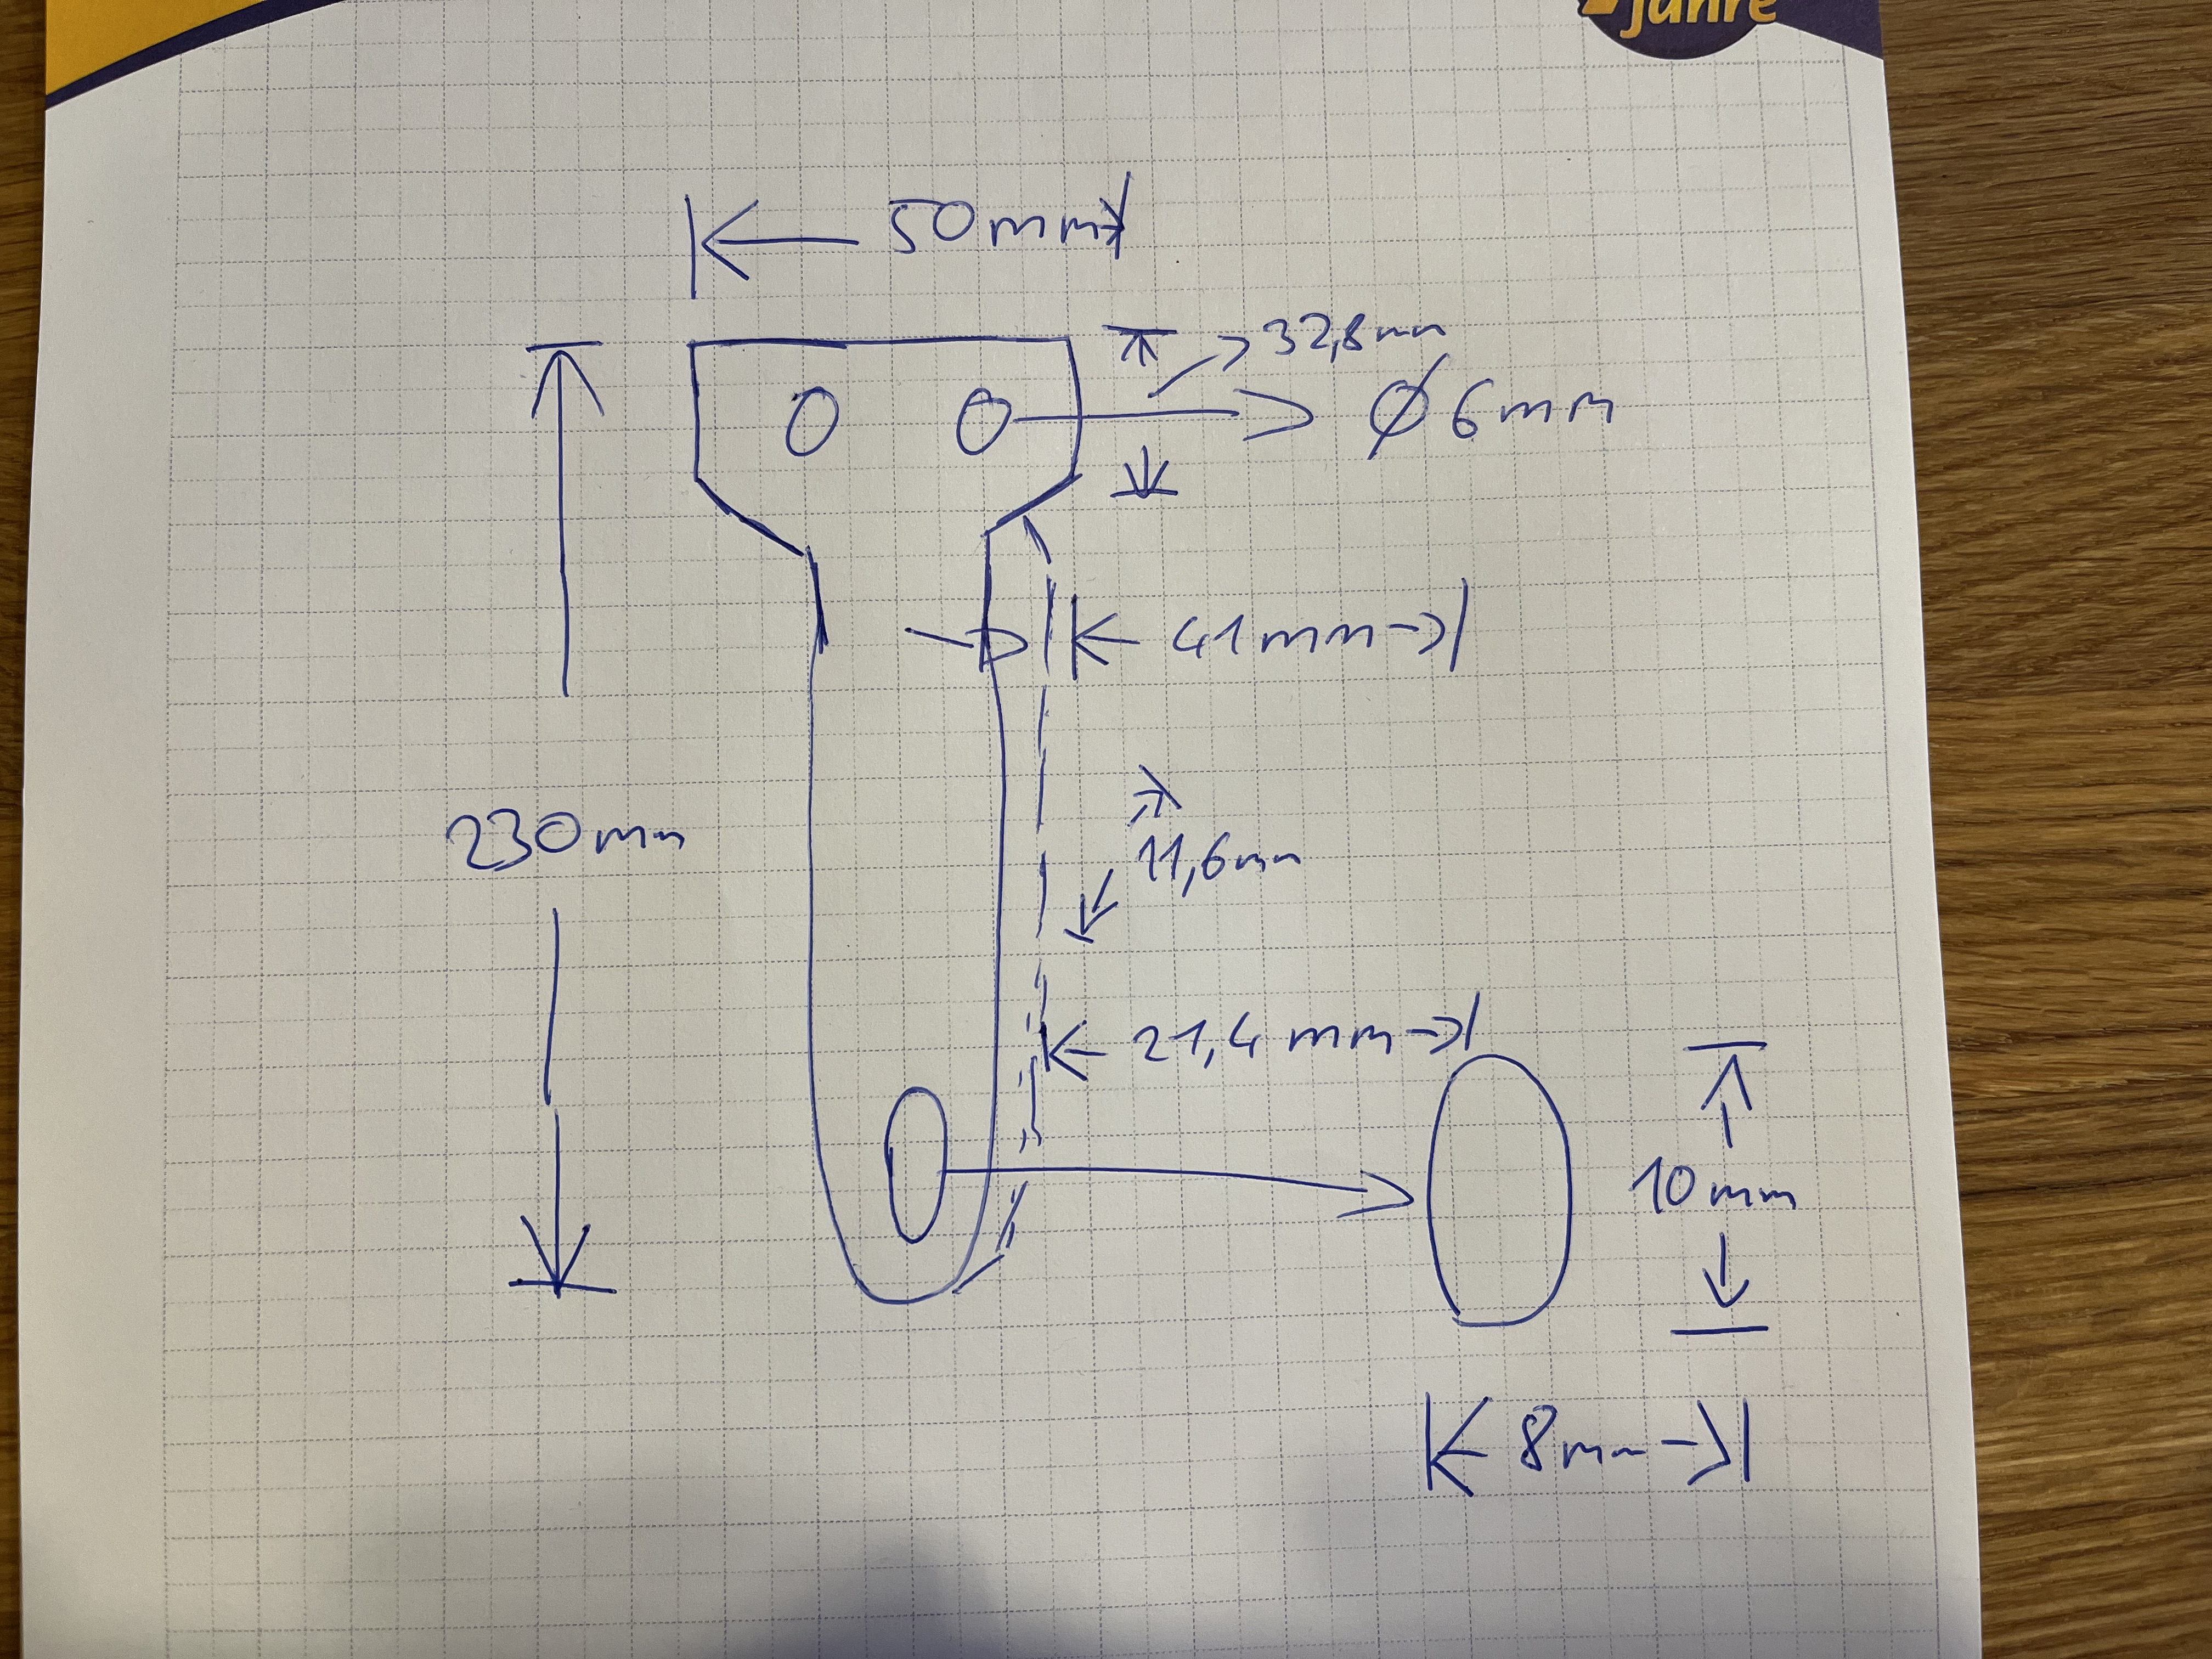 Jahre
50mm
32,8mm
Ø6mm
41mm
230mm
11,6mm
21,4mm
10mm
8mm